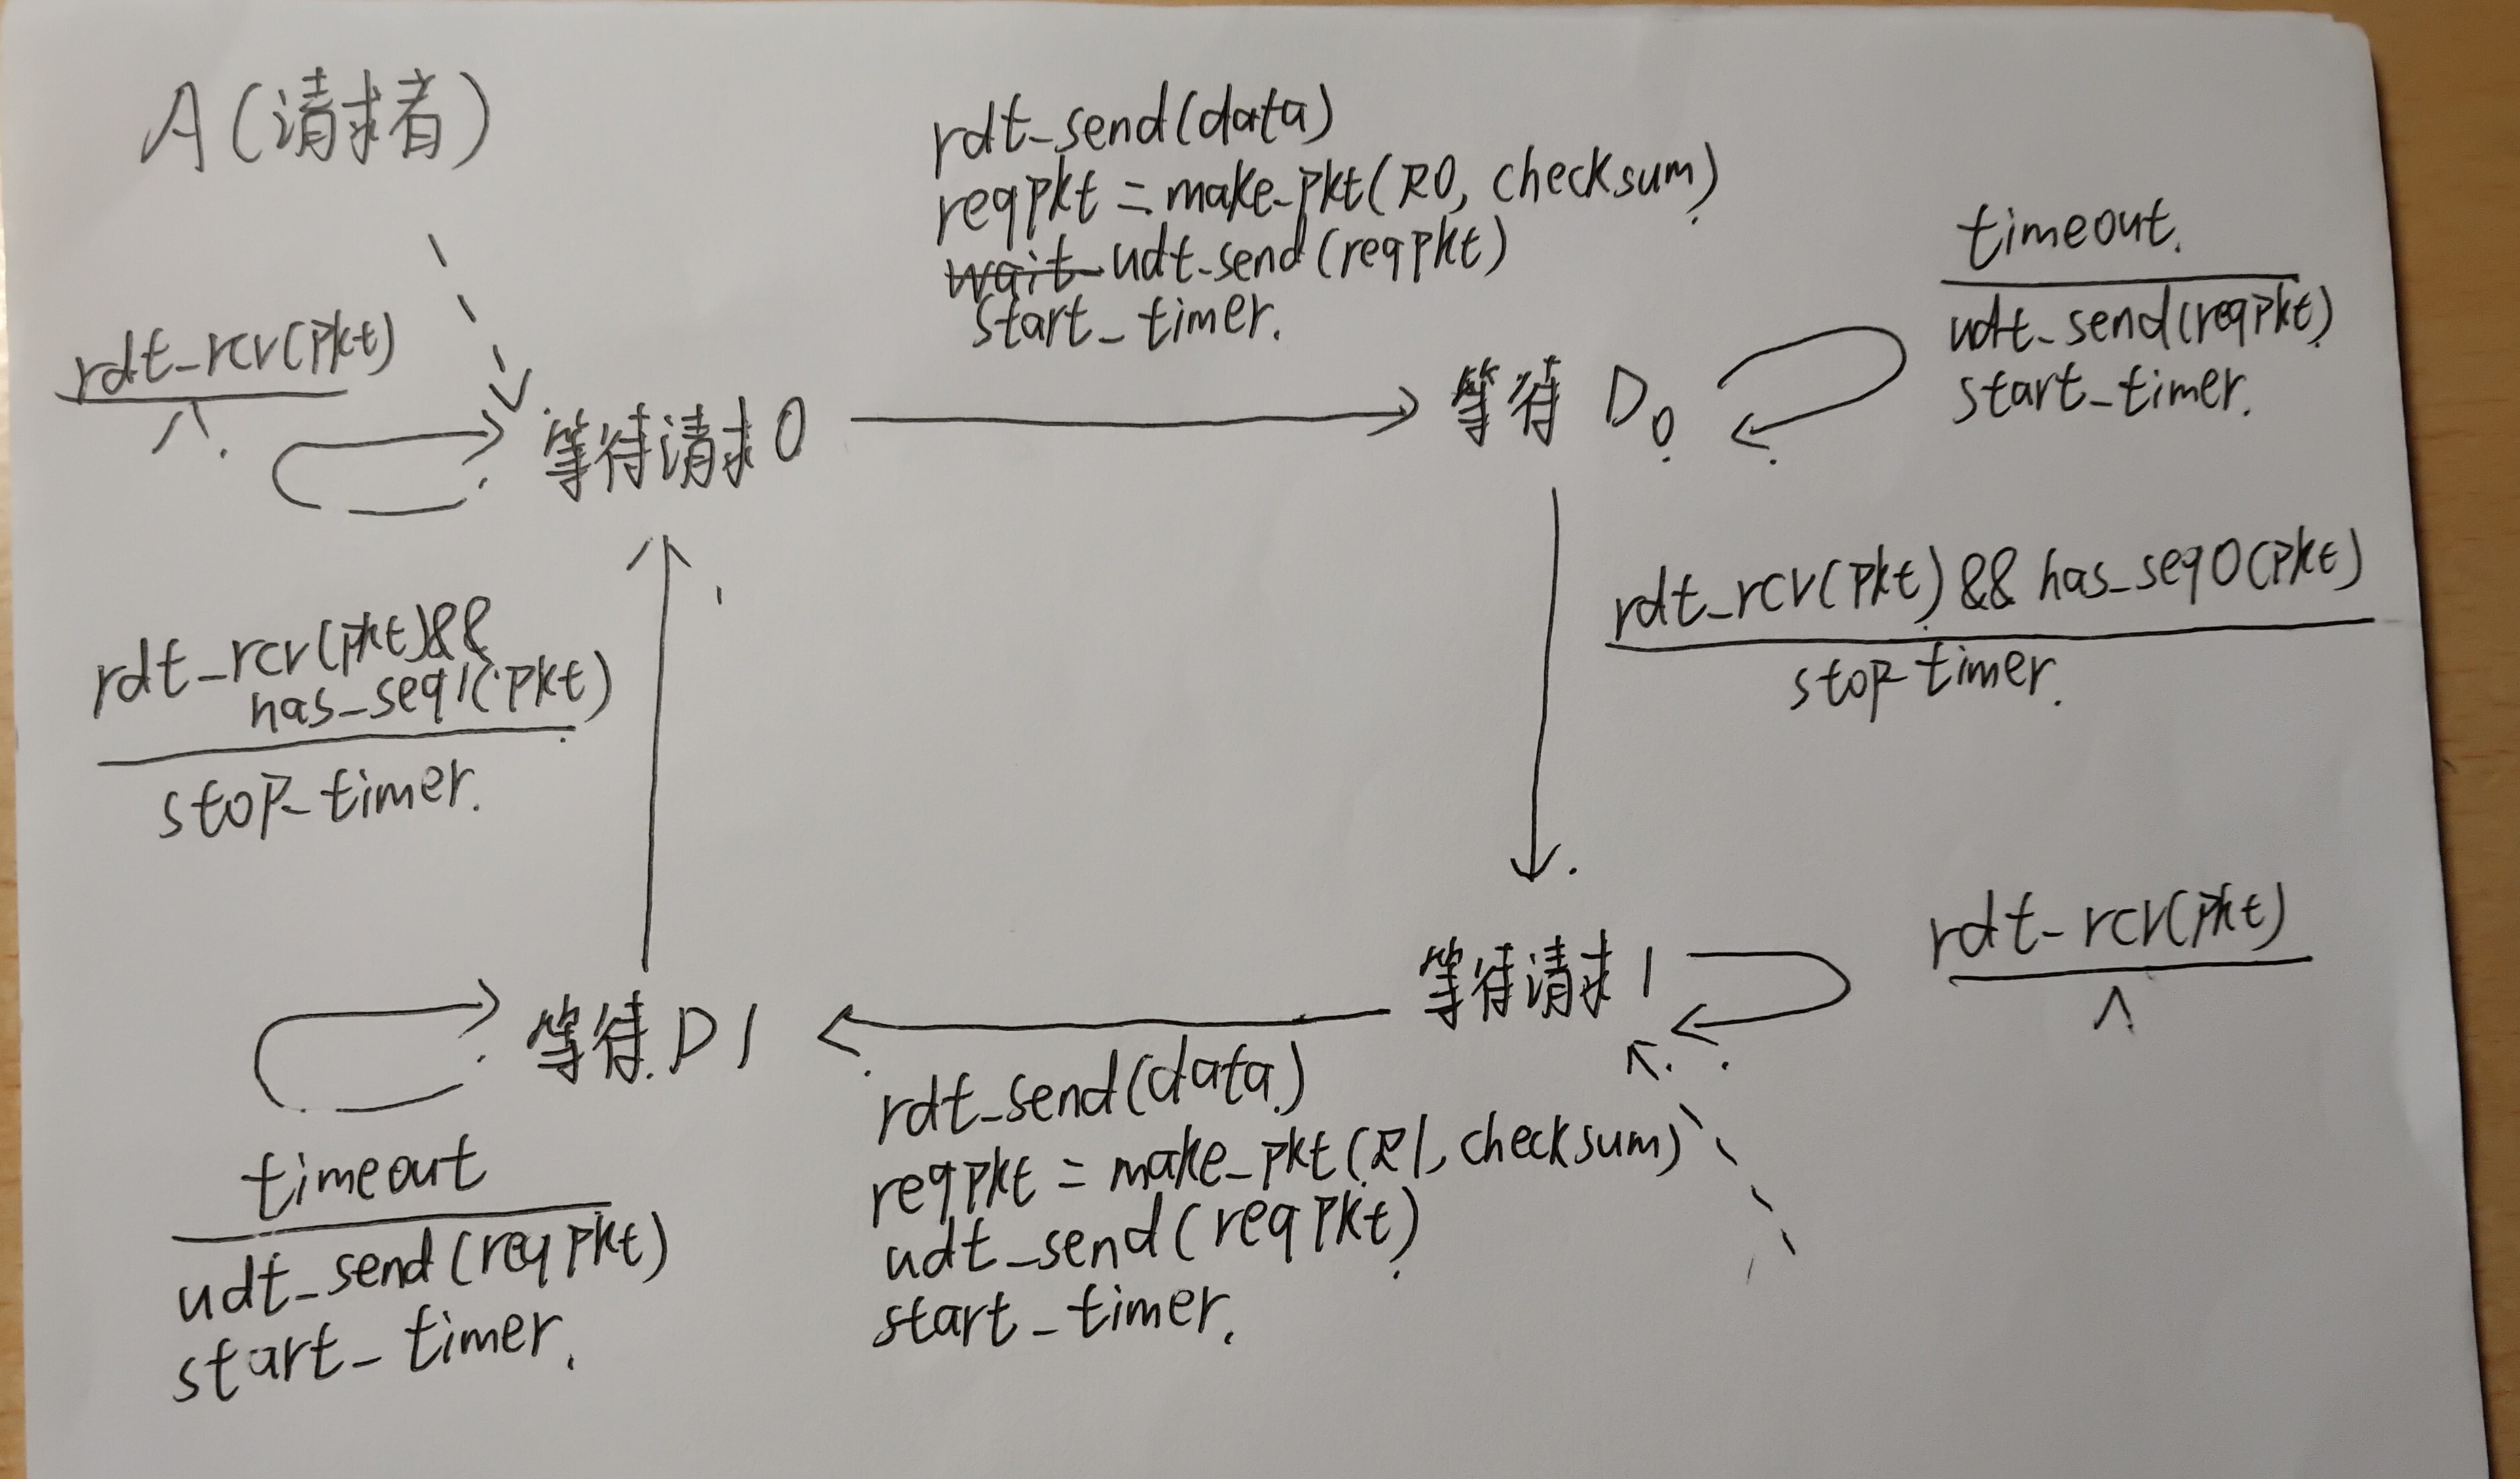 A(请求者)
rdt_send(data)
reqpkt = make_pkt(R0, checksum)
wait udt_send(reqpkt)
start_timer.
timeout.
udt_send(reqpkt)
start_timer.
rdt_rcv(pkt)
Λ.
等待请求0
等待 D0
rdt_rcv(pkt) && has_seq0(pkt)
stop timer.
rdt_rcv(pkt)&&
has_seq1(pkt)
stop_timer.
rdt_rcv(pkt)
Λ
等待请求1
等待D1
rdt_send(data)
reqpkt = make_pkt(R1, checksum)
udt_send(reqpkt)
start_timer.
timeout
udt_send(reqpkt)
start_timer.